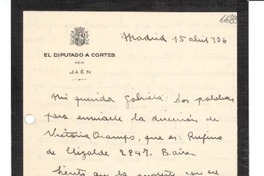 Madrid 15 abril 936
EL DIPUTADO A CORTES
POR
JAÉN
Mi querida Gabriela: Dos palabras
para enviarle la dirección de
Victoria Ocampo, que es: Rufino
de Elizalde 2847. B. Aires
Siento que la